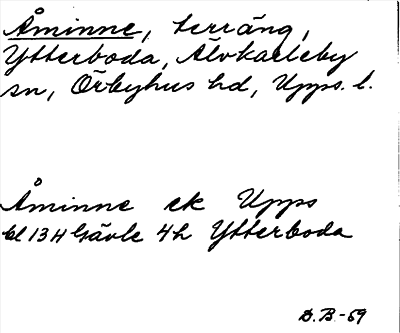 Åminne, terräng,
Ytterboda, Älvkarleby
sn, Örbyhus hd, Upps. l.
Åminne ek Upps
bl 13 H Gävle 4h Ytterboda
D.B-69